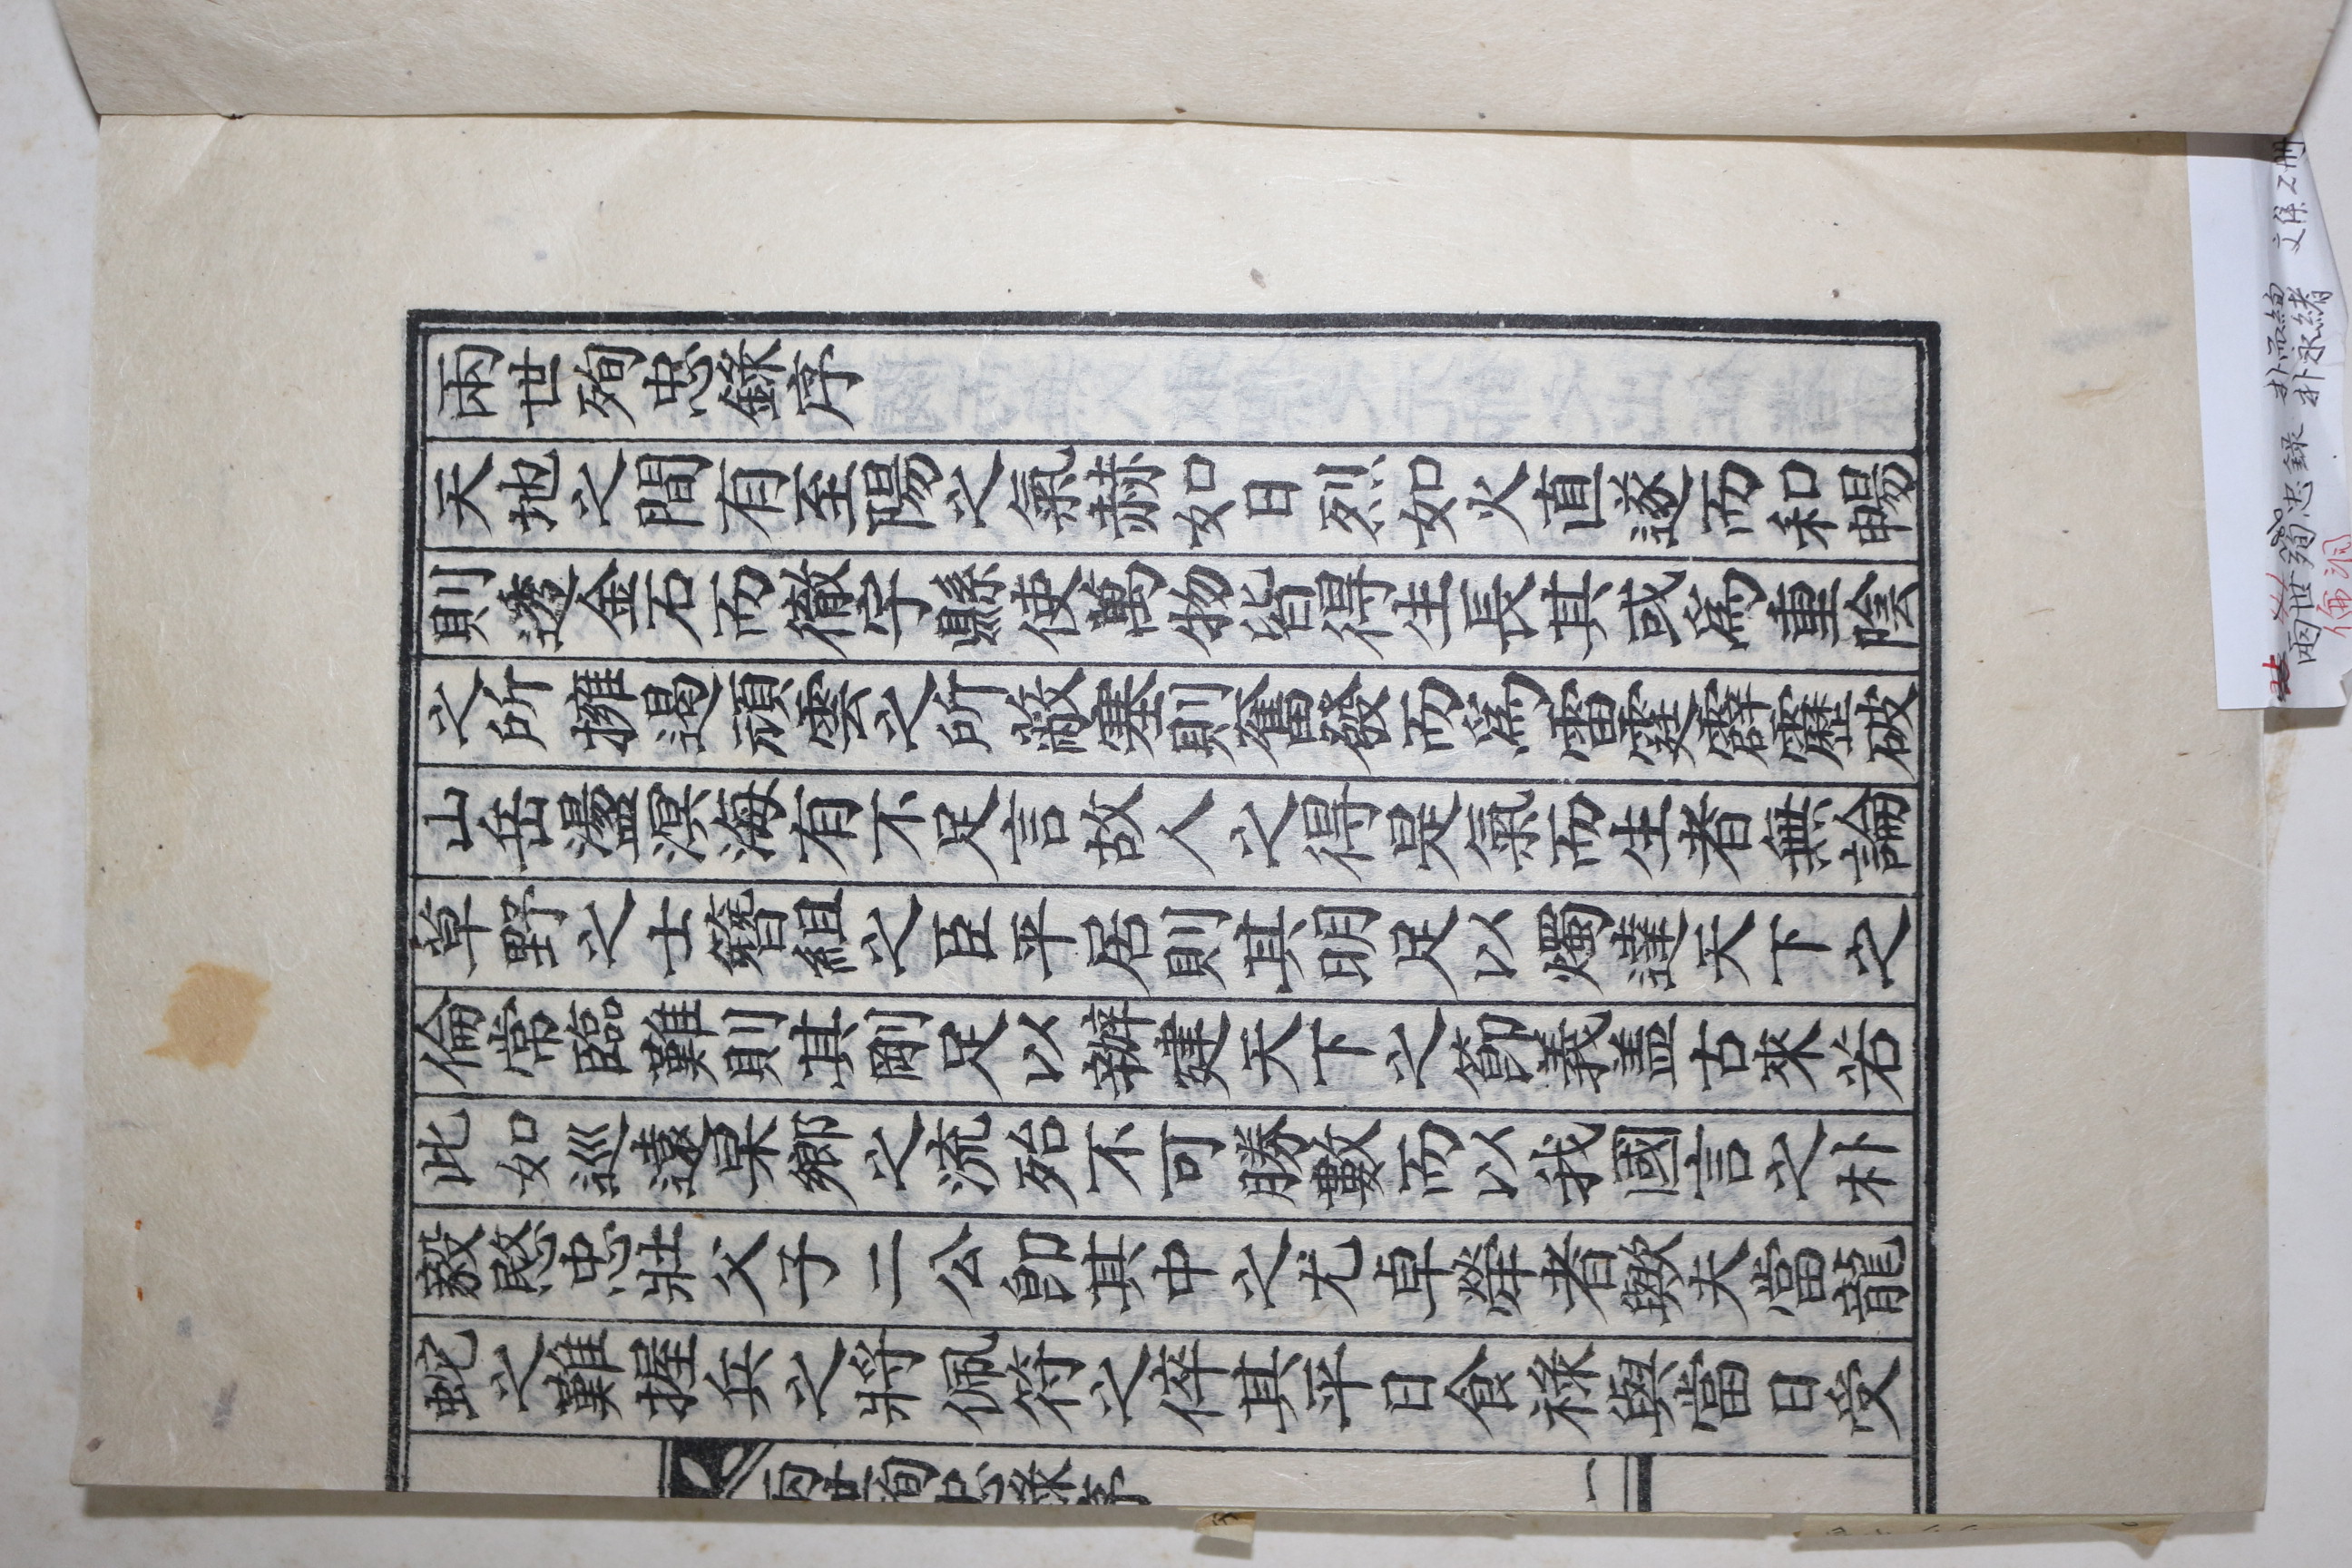 兩世殉忠錄序
天地之間有至陽之氣赫如日烈如火直遂而和暢
則透金石而徹宇縣使萬物皆得生長其或爲重陰
之所擁遏頑雲之所蔽塞則奮發而爲雷霆霹靂破
山岳盪溟海有不足言故人之得是氣而生者無論
草野之士簪組之臣平居則其明足以燭達天下之
倫常臨難則其剛足以辦建天下之節義盖古來若
此如巡遠杲鄕之流殆不可勝數而以我國言之朴
毅愍忠壯父子二公卽其中之尤卓犖者歟夫當龍
蛇之難握兵之將佩符之倅其平日食祿與當日受
兩世殉忠錄序
一
兩世殉忠錄
朴而絢
朴永緖
文集 2册
倫洞